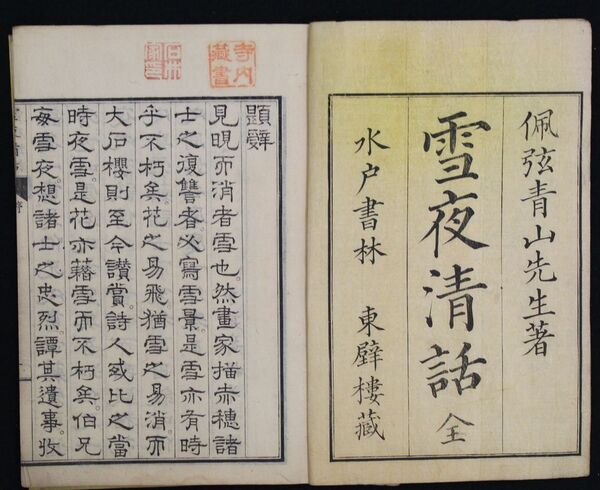 佩弦青山先生著
雪夜清話 全
水戶書林 東壁樓藏
寺内藏書
題辭
見晛而消者雪也。然畫家描赤穗諸
士之復讐者必寫雪景是雪亦有時
乎不朽矣。花之易飛猶雪之易消而
大石櫻則至今讚賞。詩人或比之當
時夜雪。是花亦藉雪而不朽矣。伯兄
每雪夜。想諸士之忠烈。譚其遺事。收